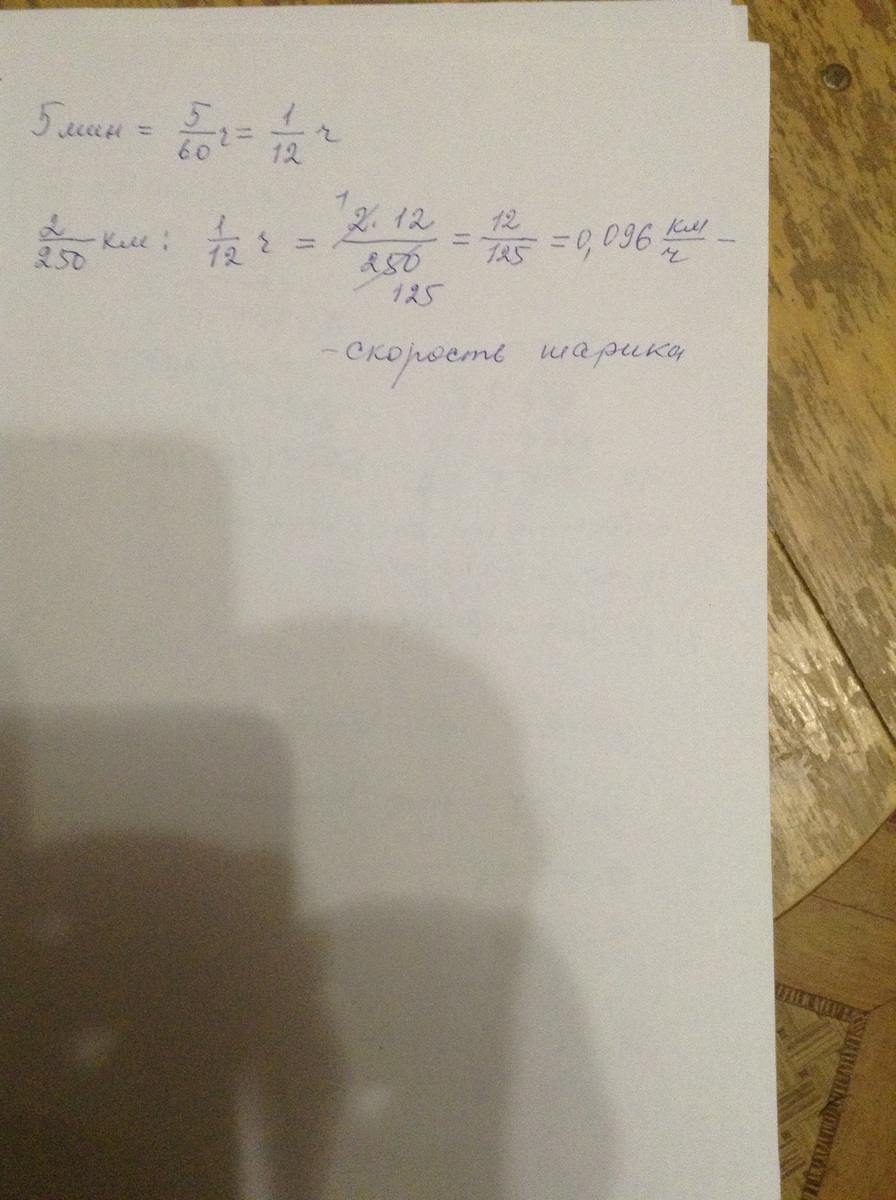 5 мин = 5/60 ч = 1/12 ч
2/250 км : 1/12 ч = 2 · 12/250 = 12/125 = 0,096 км/ч –
1
125
– скорость шарика